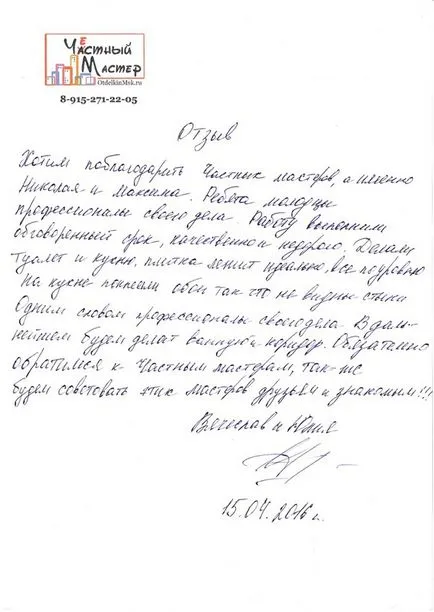 Честный
Мастер
OtdelkinMsk.ru
8-915-271-22-05
Отзыв
Хотим поблагодарить Частных мастеров, а именно
Николая и Максима. Ребята молодцы
профессионалы своего дела Работу выполнили
обговоренный срок, качественно и недорого. Делали
туалет и кухню, плитка лежит идеально, все по уровню
На кухне поклеили обои так что не видны стыки
Одним словом профессионалы своего дела. В даль-
нейшем будем делат ванную и коридор. Обязательно
обратимся к Частным мастерам, так-же
будем советовать этих мастеров друзьям и знакомым!!!
Вячеслав и Юлия
15.04.2016 г.